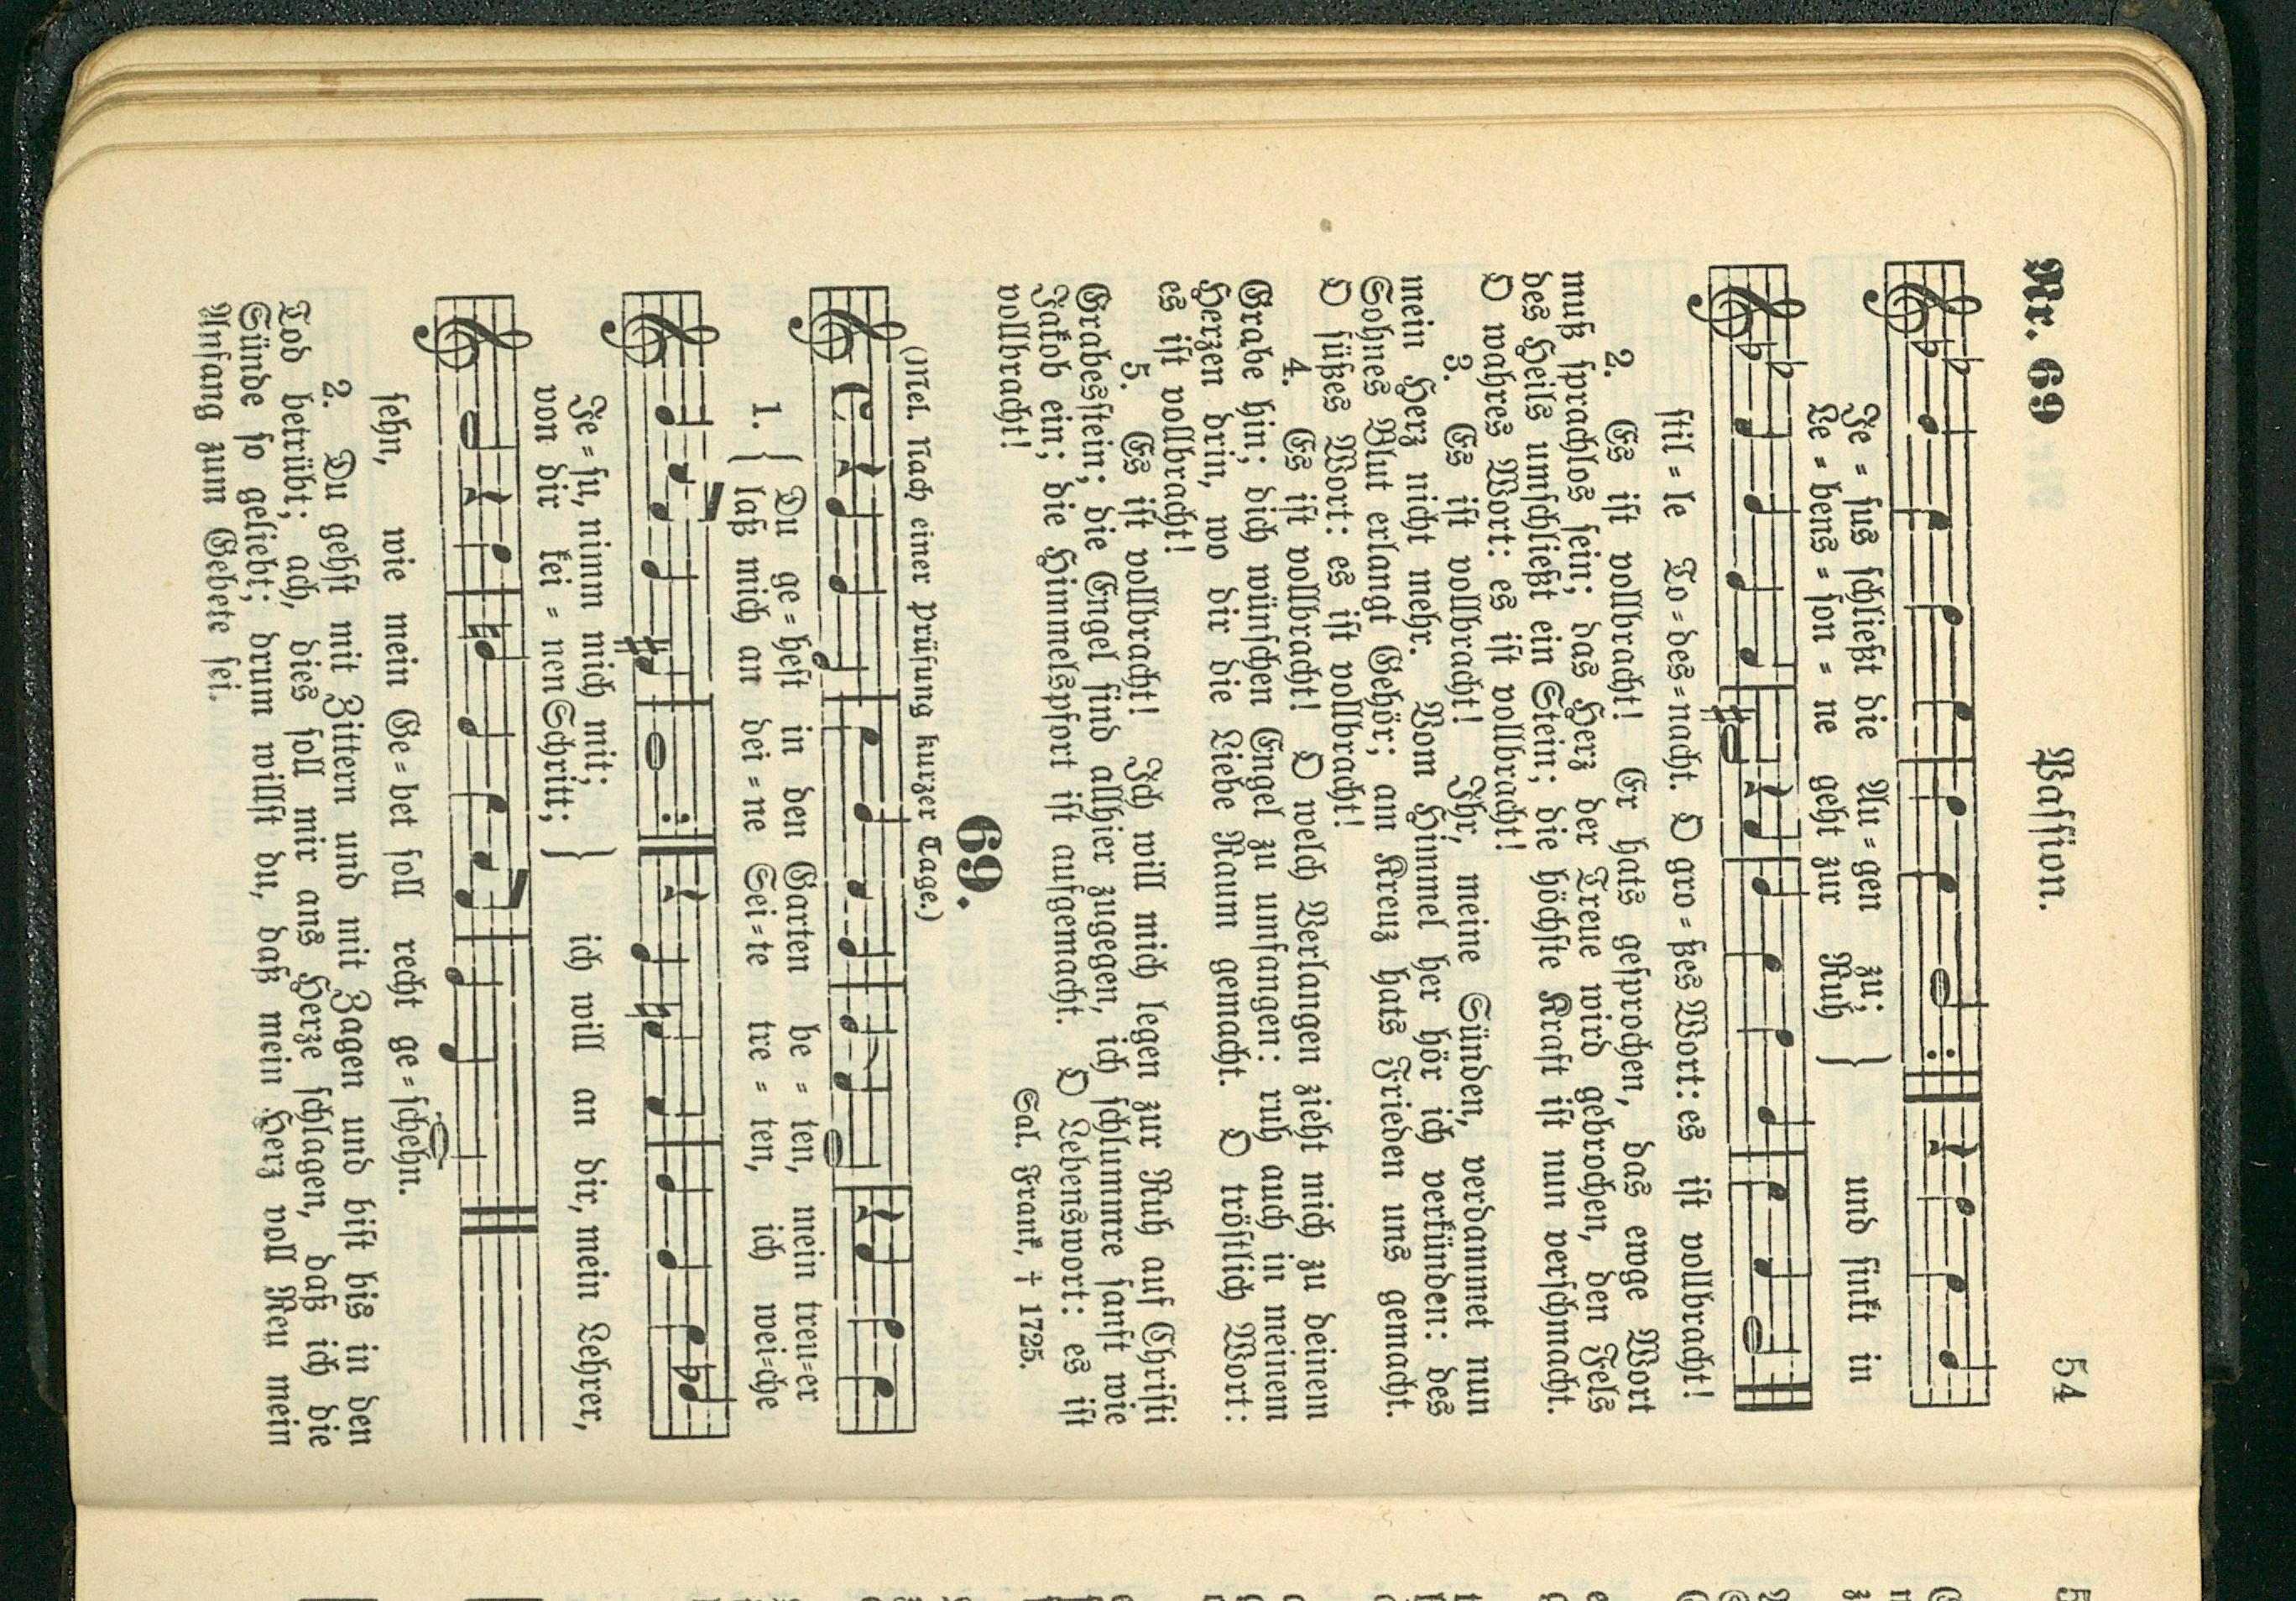 Nr. 69 Passion. 54
Je = sus schließt die Au = gen zu; und sinkt in
Le = bens = son = ne geht zur Ruh
stil = le To = des = nacht. O gro = ßes Wort: es ist vollbracht!
2. Es ist vollbracht! Er hats gesprochen, das ewge Wort
muß sprachlos sein; das Herz der Treue wird gebrochen, den Fels
des Heils umschließt ein Stein; die höchste Kraft ist nun verschmacht.
O wahres Wort: es ist vollbracht!
3. Es ist vollbracht! Ihr, meine Sünden, verdammet nun
mein Herz nicht mehr. Vom Himmel her hör ich verkünden: des
Sohnes Blut erlangt Gehör; am Kreuz hats Frieden uns gemacht.
O süßes Wort: es ist vollbracht!
4. Es ist vollbracht! O welch Verlangen zieht mich zu deinem
Grabe hin; dich wünschen Engel zu umfangen: ruh auch in meinem
Herzen drin, wo dir die Liebe Raum gemacht. O tröstlich Wort:
es ist vollbracht!
5. Es ist vollbracht! Ich will mich legen zur Ruh auf Christi
Grabesstein; die Engel sind allhier zugegen, ich schlummre sanft wie
Jakob ein; die Himmelspfort ist aufgemacht. O Lebenswort: es ist
vollbracht!
Sal. Frank, † 1725.
69.
(Mel. nach einer Prüfung kurzer Tage.)
1. Du ge = hest in den Garten be = ten, mein treu=er
laß mich an dei = ne Sei=te tre = ten, ich wei=che
Je = su, nimm mich mit; ich will an dir, mein Lehrer,
von dir kei = nen Schritt;
sehn, wie mein Ge = bet soll recht ge = schehn.
2. Du gehst mit Zittern und mit Zagen und bist bis in den
Tod betrübt; ach, dies soll mir ans Herze schlagen, daß ich die
Sünde so geliebt; drum willst du, daß mein Herz voll Reu mein
Anfang zum Gebete sei.